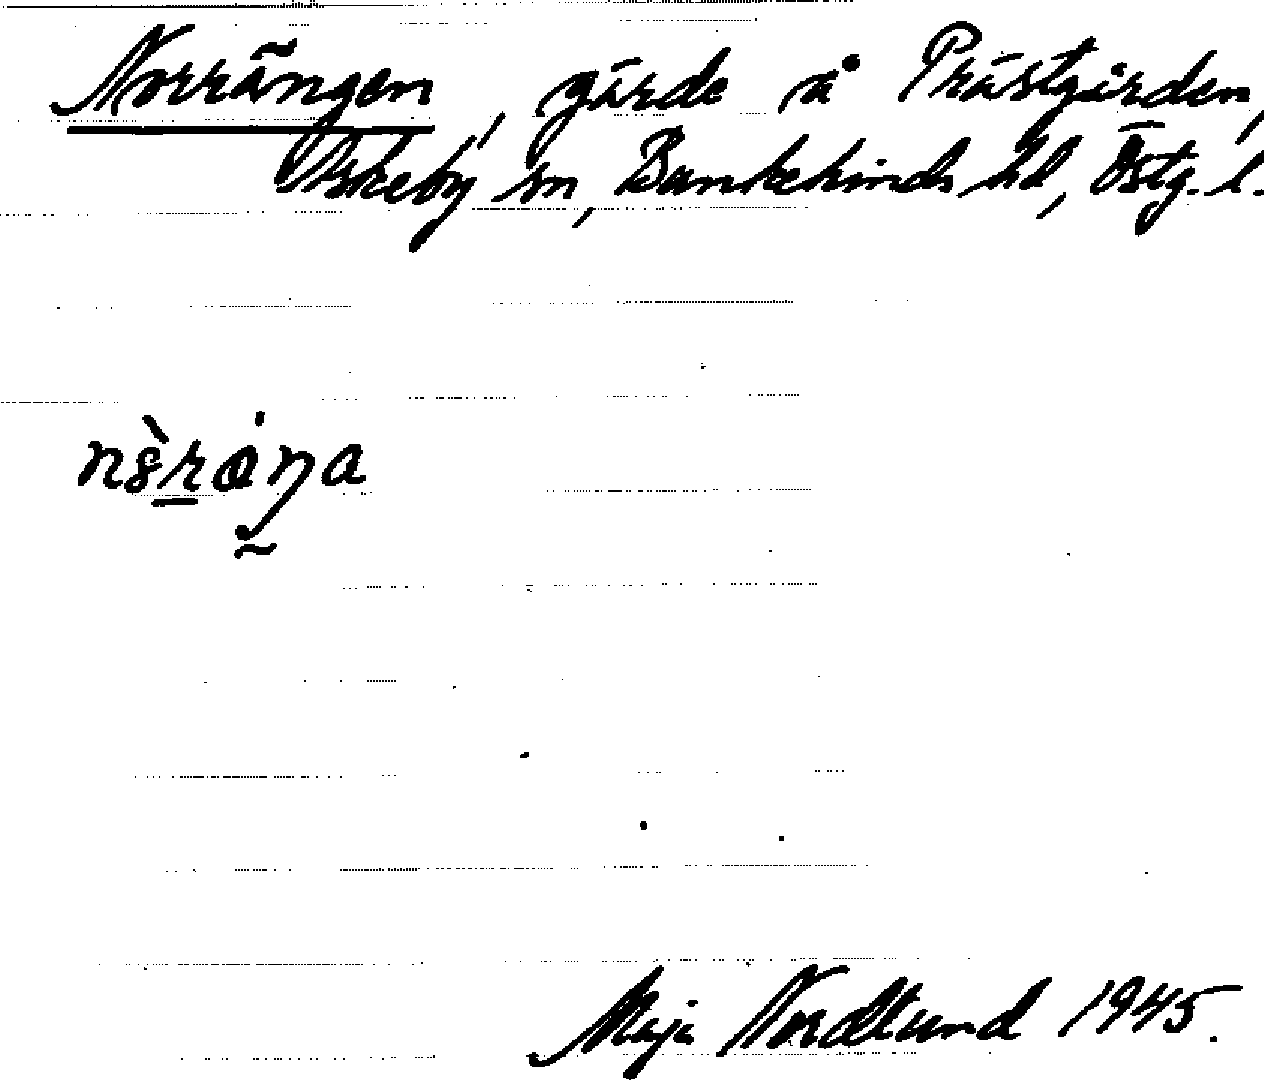 Norrängen, gärde å Prästgården,
Askeby sn, Bankekinds hd, Östg. l.
Maja Nordlund 1945.